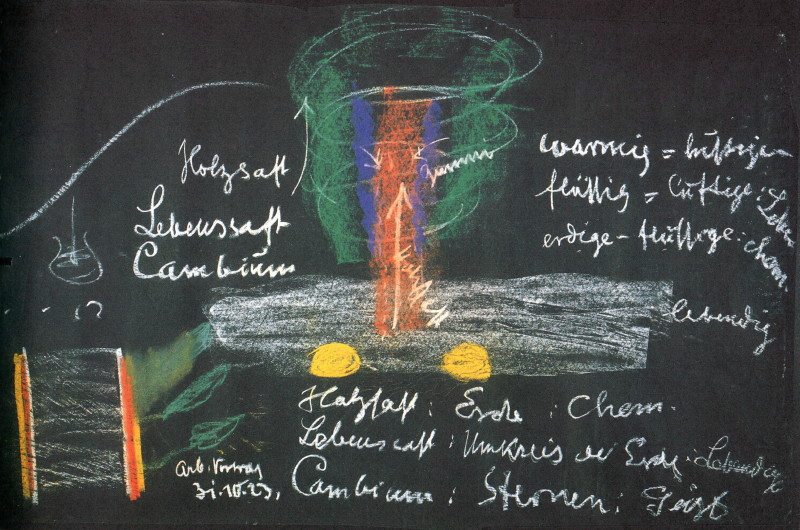 Holzsaft
Lebenssaft
Cambium
Gummi
warmig = luftige
flüssig = luftige: Leben
erdige - flüssige: chem.
lebendig
Holzsaft: Erde: Chem.
Lebenssaft: Umkreis der Erde: Lebendige
Cambium: Sternen: Geist
Arb. Vortrag
31.10.23.